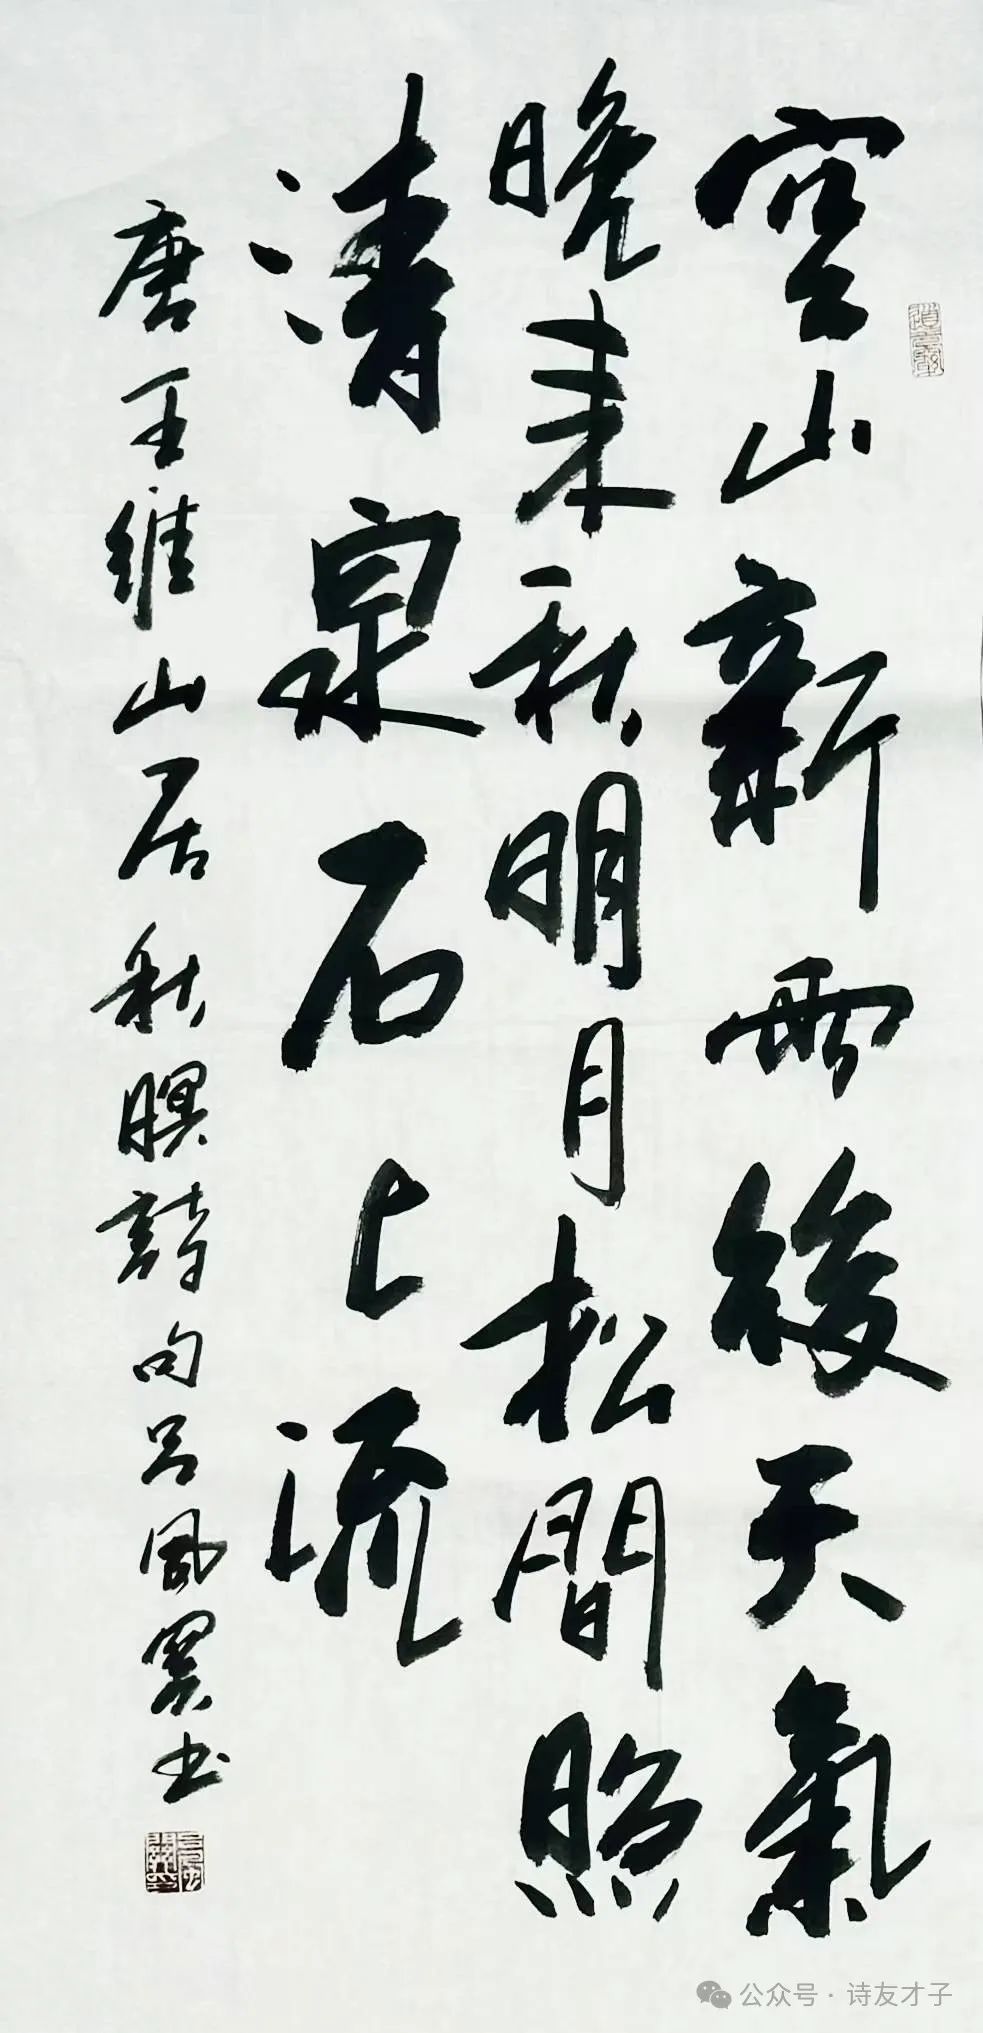 空山新雨後天氣
晚来秋明月松間照
清泉石上流
唐王維山居秋暝詩句吕風书
公众号 · 诗友才子